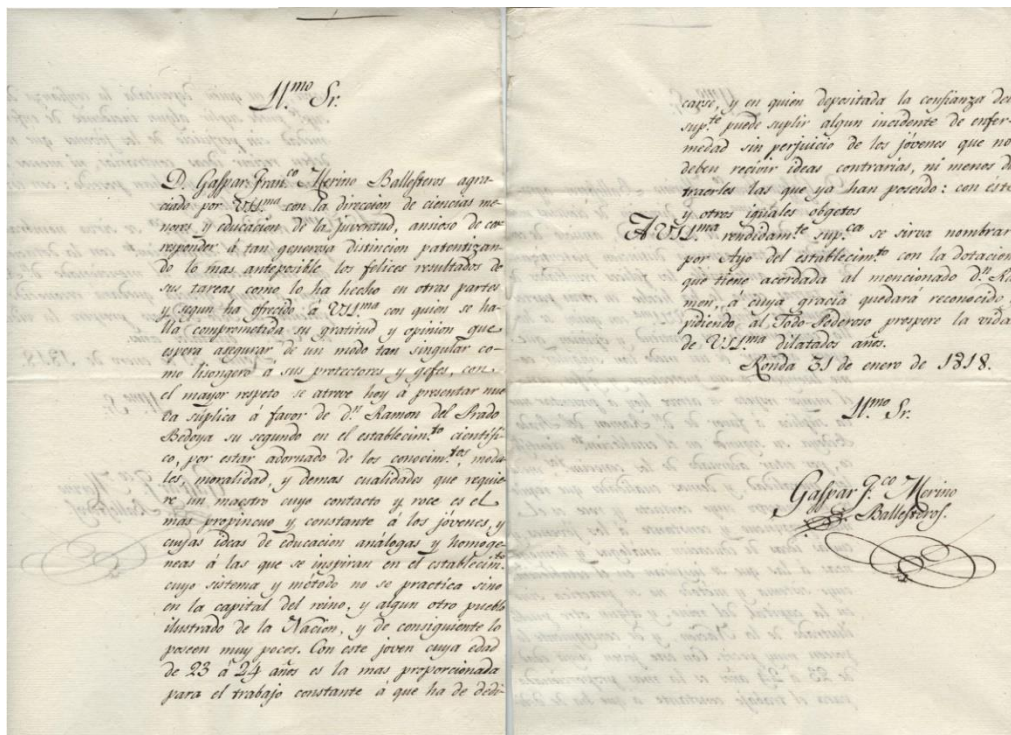 Il.mo Sr.
D. Gaspar Fran.co Merino Ballesteros agra-
ciado por VSI.ma con la direccion de ciencias me-
nores y educacion de la juventud, ansioso de cor
responder á tan generosa distincion patentizan-
do lo mas anteposible los felices resultados de
sus tareas como lo ha hecho en otras partes
y segun ha ofrecido á VSI.ma con quien se ha-
lla comprometida su gratitud y opinion que
espera asegurar de un modo tan singular co-
mo lisongero á sus protectores y gefes, con
el mayor respeto se atreve hoy á presentar nue
va súplica á favor de d.n Ramon del Prado
Bedoya su segundo en el establecim.to científi-
co, por estar adornado de los conocim.tos, moda-
les, moralidad, y demas cualidades que requie-
re un maestro cuyo contacto y roce es el
mas propincuo y constante á los jóvenes, y
cuyas ideas de educacion análogas y homogé-
neas á las que se inspiran en el establecim.to
cuyo sistema y método no se practica sino
en la capital del reino, y algun otro pueblo
ilustrado de la Nacion, y de consiguiente lo
poseen muy pocos. Con este joven cuya edad
de 23 á 24 años es la mas proporcionada
para el trabajo constante á que ha de dedi-
carse, y en quien depositada la confianza del
sup.te puede suplir algun incidente de enfer-
medad sin perjuicio de los jóvenes que no
deben recivir ideas contrarias, ni menos dis
traerles las que ya han poseido: con este
y otros iguales obgetos
A VSI.ma rendidam.te sup.ca se sirva nombrar
por Ayo del establecim.to con la dotacion
que tiene acordada al mencionado d.n Ra-
mon, á cuya gracia quedará reconocido
pidiendo al Todo Poderoso prospere la vida
de VSI.ma dilatados años.
Ronda 31 de enero de 1818.
Il.mo Sr.
Gaspar F.co Merino
Ballesteros.